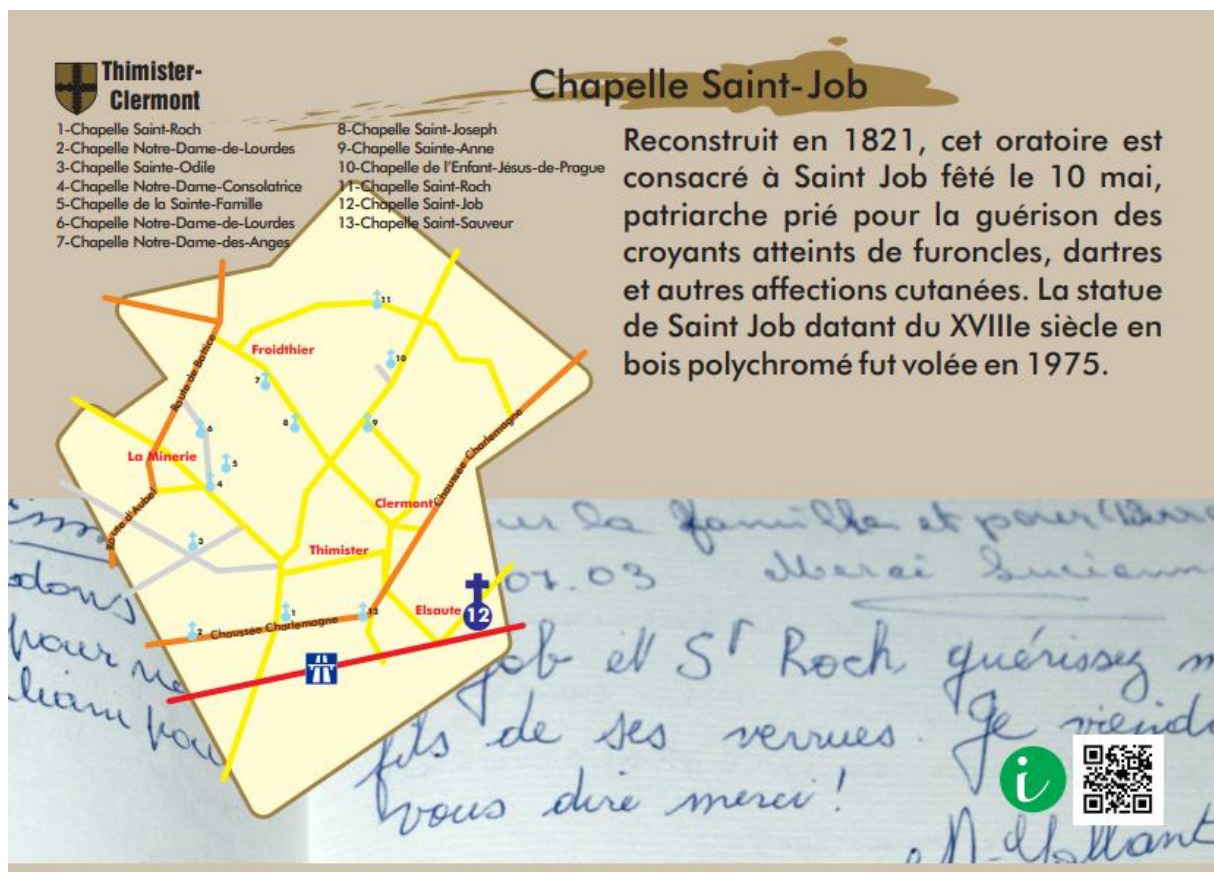 Thimister-
Clermont
1-Chapelle Saint-Roch
2-Chapelle Notre-Dame-de-Lourdes
3-Chapelle Sainte-Odile
4-Chapelle Notre-Dame-Consolatrice
5-Chapelle de la Sainte-Famille
6-Chapelle Notre-Dame-de-Lourdes
7-Chapelle Notre-Dame-des-Anges
8-Chapelle Saint-Joseph
9-Chapelle Sainte-Anne
10-Chapelle de l'Enfant-Jésus-de-Prague
11-Chapelle Saint-Roch
12-Chapelle Saint-Job
13-Chapelle Saint-Sauveur
Chapelle Saint-Job
Reconstruit en 1821, cet oratoire est
consacré à Saint Job fêté le 10 mai,
patriarche prié pour la guérison des
croyants atteints de furoncles, dartres
et autres affections cutanées. La statue
de Saint Job datant du XVIIIe siècle en
bois polychromé fut volée en 1975.
11
Froidthier
Route de Battice
10
7
8
9
6
La Minerie
5
4
Chaussée Charlemagne
Clermont
Route d'Aubel
3
Thimister
Elsaute
12
1
13
2
Chaussée Charlemagne
la famille et pour
07.03 Merci
dons
pour
pour
Job et St Roch guérissez
fils de ses verrues. Je
vous dire merci!
i